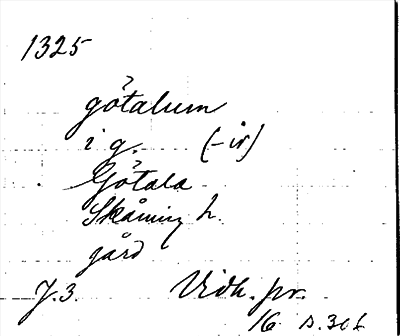 1325
götalum
i g. (-ir)
Götala
Skåning h.
gård
J. 3. Vidh. pr.
16 s. 306